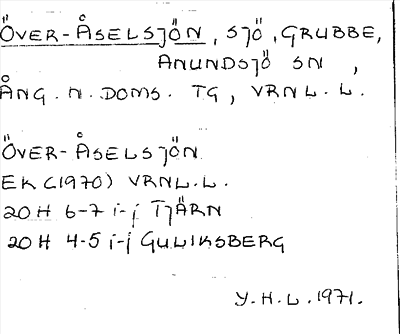 ÖVER-ÅSELSJÖN, SJÖ, GRUBBE,
ANUNDSJÖ SN,
ÅNG. N. DOMS. TG, VRNL.L.
ÖVER-ÅSELSJÖN
EK (1970) VRNL.L.
20H 6-7 i-j TJÄRN
20H 4-5 i-j GULIKSBERG
Y.H.L. 1971.